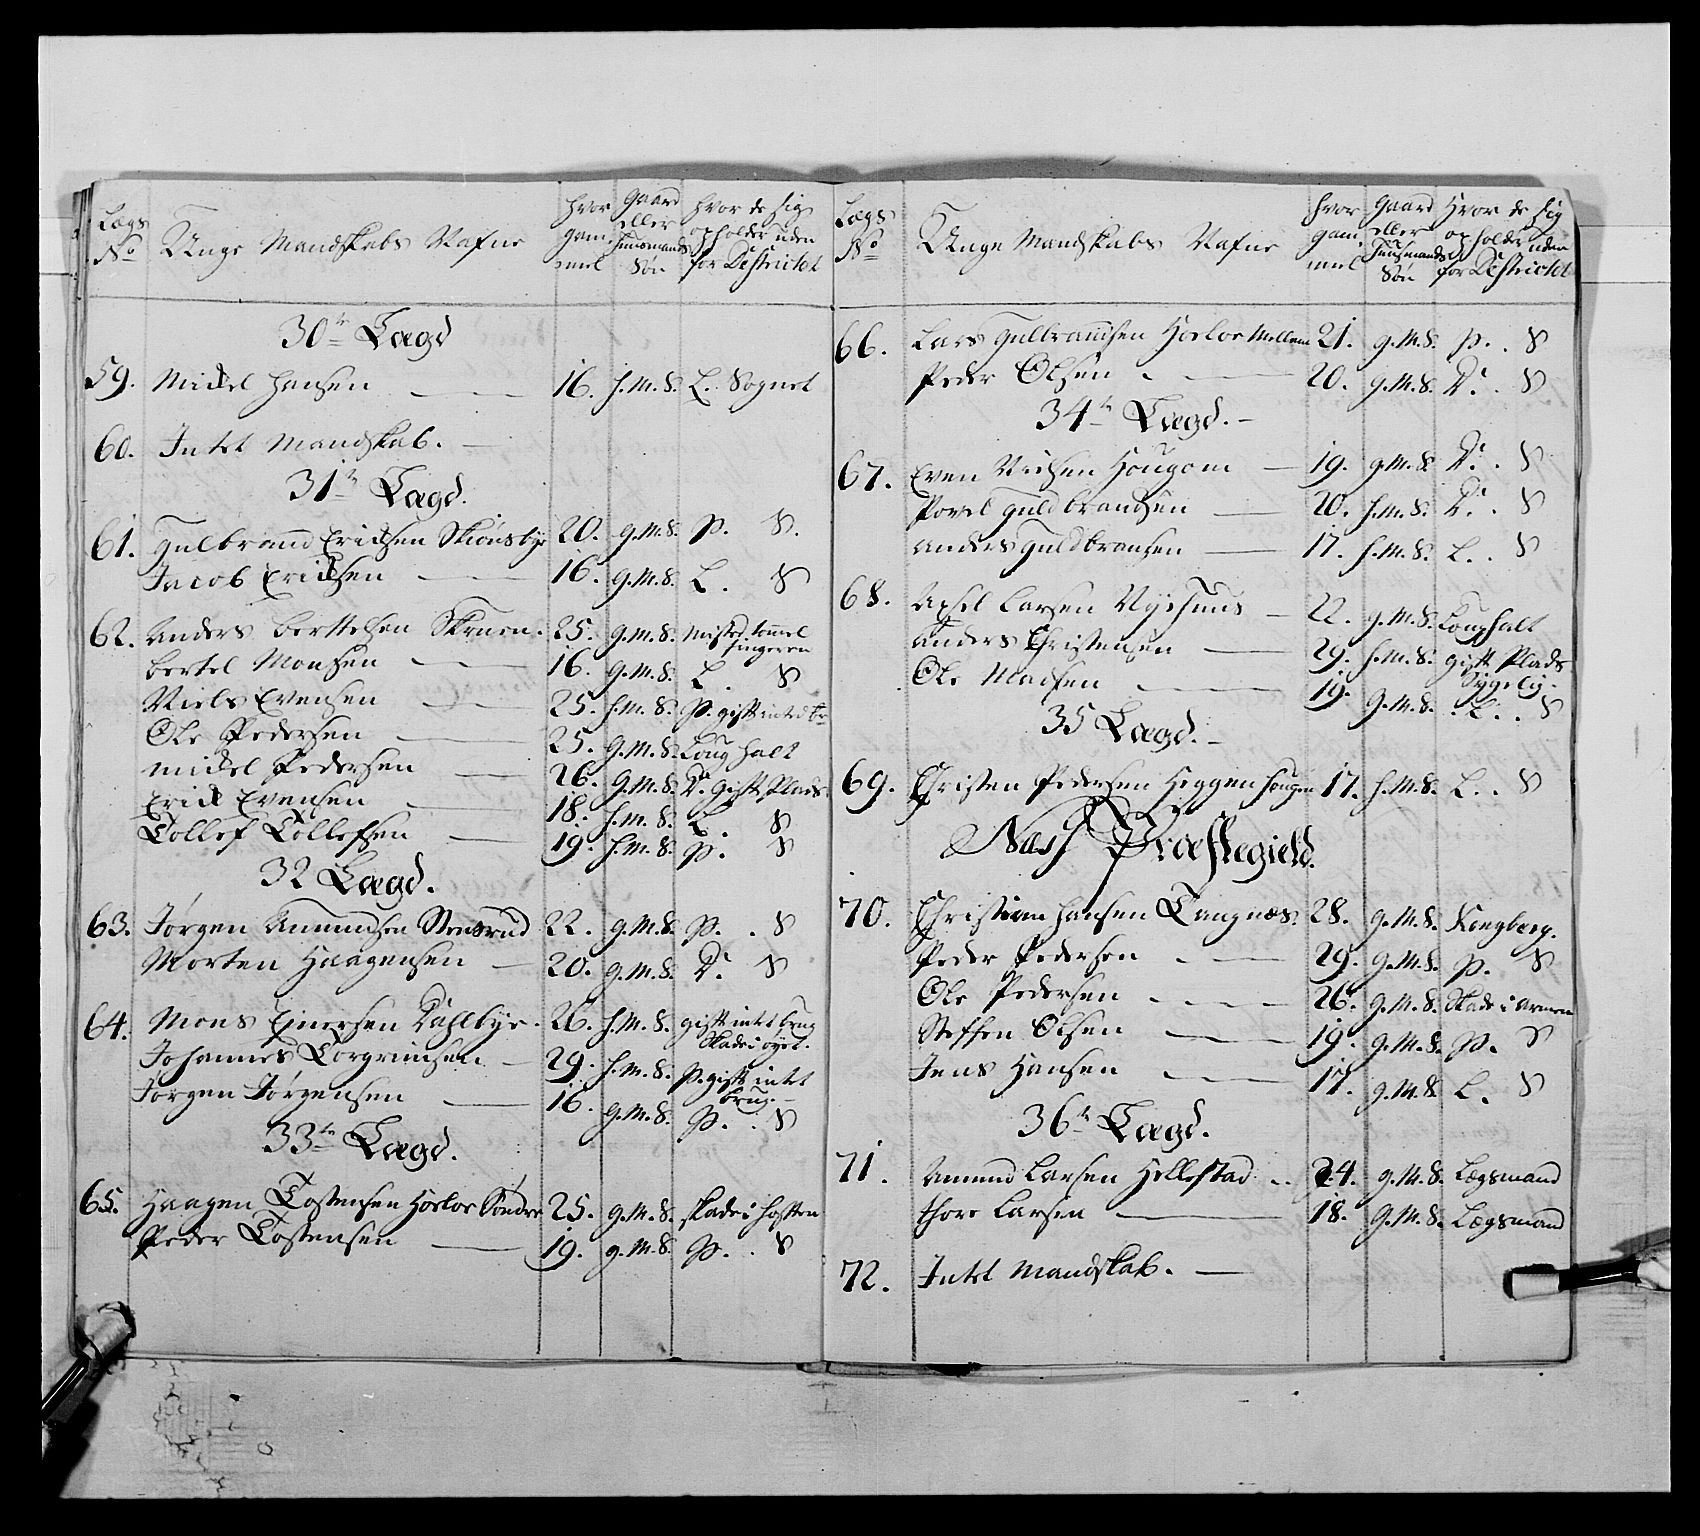 Lægs No | Unge Mandskabs Nafne | hvor gammel | Gaard eller Huusmands Søn | hvor de sig opholder uden for Destrictet
30te Lægd
59. Mickel Hansen 16. h.M.S. L. Sognet
60. Intet Mandskab.
31te Lægd.
61. Gulbrand Ericksen Skiønsbye 20. g.M.S. P. S.
Jacob Ericksen 16. g.M.S. L. S
62. Anders Berttelsen Skruen. 25. g.M.S. misted tommel fingeren
Bertel Monsen 16. g.M.S. L. S
Niels Evensen 25. h.M.S. P. gift inted br
Ole Pedersen 25. g.M.S. Loug halt
Mickel Pedersen 26. g.M.S. Do. gift Plads
Erick Evensen 18. h.M.S. L. S
Tollef Tollefsen 19. h.M.S. P. S
32 Lægd.
63. Jørgen Amundsen Stensrud 22. g.M.S. P. S
Morten Haagensen 20. g.M.S. Do. S
64. Mons Ejnersen Dahlbye. 26. h.M.S. gift intet brug skade i øyet.
Johannes Torgrimsen 29. h.M.S. P. gift intet brug.
Jørgen Jørgensen 16. g.M.S. P. S
33te Lægd.
65. Haagen Tostensen Horloe Søndre 25. g.M.S. skade i hoften
Peder Tostensen 19. g.M.S. P. S
Lægs No | Unge Mandskabs Nafne | hvor gammel | Gaard eller Huusmands Søn | Hvor de sig opholder uden for Destrictet
66. Lars Gulbrandsen Horloe Mellem 21. g.M.S. P. S
Peder Olsen 20. g.M.S. Do. S
34te Lægd.
67. Even Nielsen Hougom 19. g.M.S. Do. S
Povel Guldbrandsen 20. h.M.S. Do. S
Anders Guldbransen 17. h.M.S. L. S
68. Axsel Larsen Nyehuus 22. g.M.S. Loughalt
Anders Christensen 29. h.M.S. gift Plads
Ole Madsen 19. g.M.S. L. S
35 Lægd.
69. Christen Pedersen Heggenhougen 17. h.M.S. L. S
Næss Præstegield.
70. Christian Hansen Tangnæs. 28. g.M.S. Kongberg.
Peder Pedersen 29. g.M.S. P. S
Ole Pedersen 26. g.M.S. Skade i armen
Steffen Olsen 19. g.M.S. P. S
Jens Hansen 17. g.M.S. L. S
36te Lægd.
71. Amund Larsen Hellestad 24. g.M.S. Lægsmand
Thore Larsen 18. g.M.S. Lægsmand
72. Intet Mandskab.